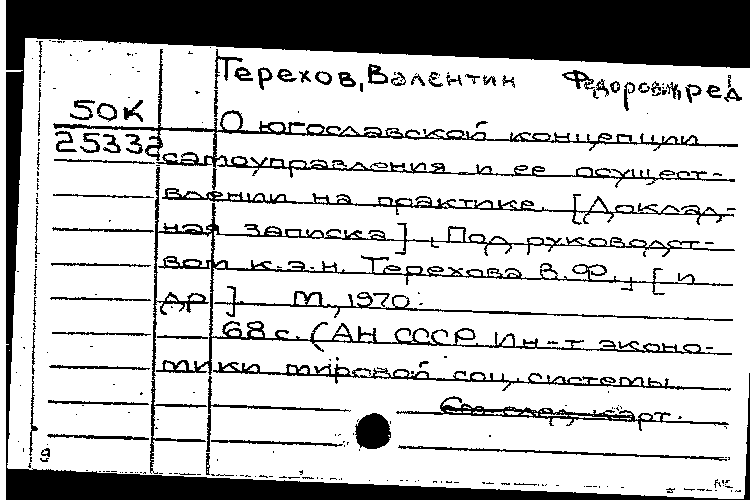 Терехов, Валентин Федорович, ред
50К
25332
О югославской концепции
самоуправления и ее осущест-
влении на практике. [Доклад-
ная записка]. Под руководст-
вом к.э.н. Терехова В.Ф., [и
др]. М., 1970.
68 с. (АН СССР Ин-т эконо-
мики мировой соц. системы
См след. карт.
9